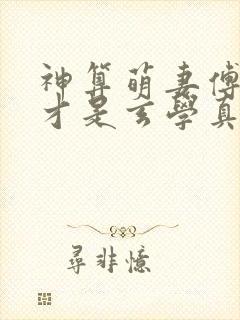 神算萌妻傅
才是玄學真
尋非憶